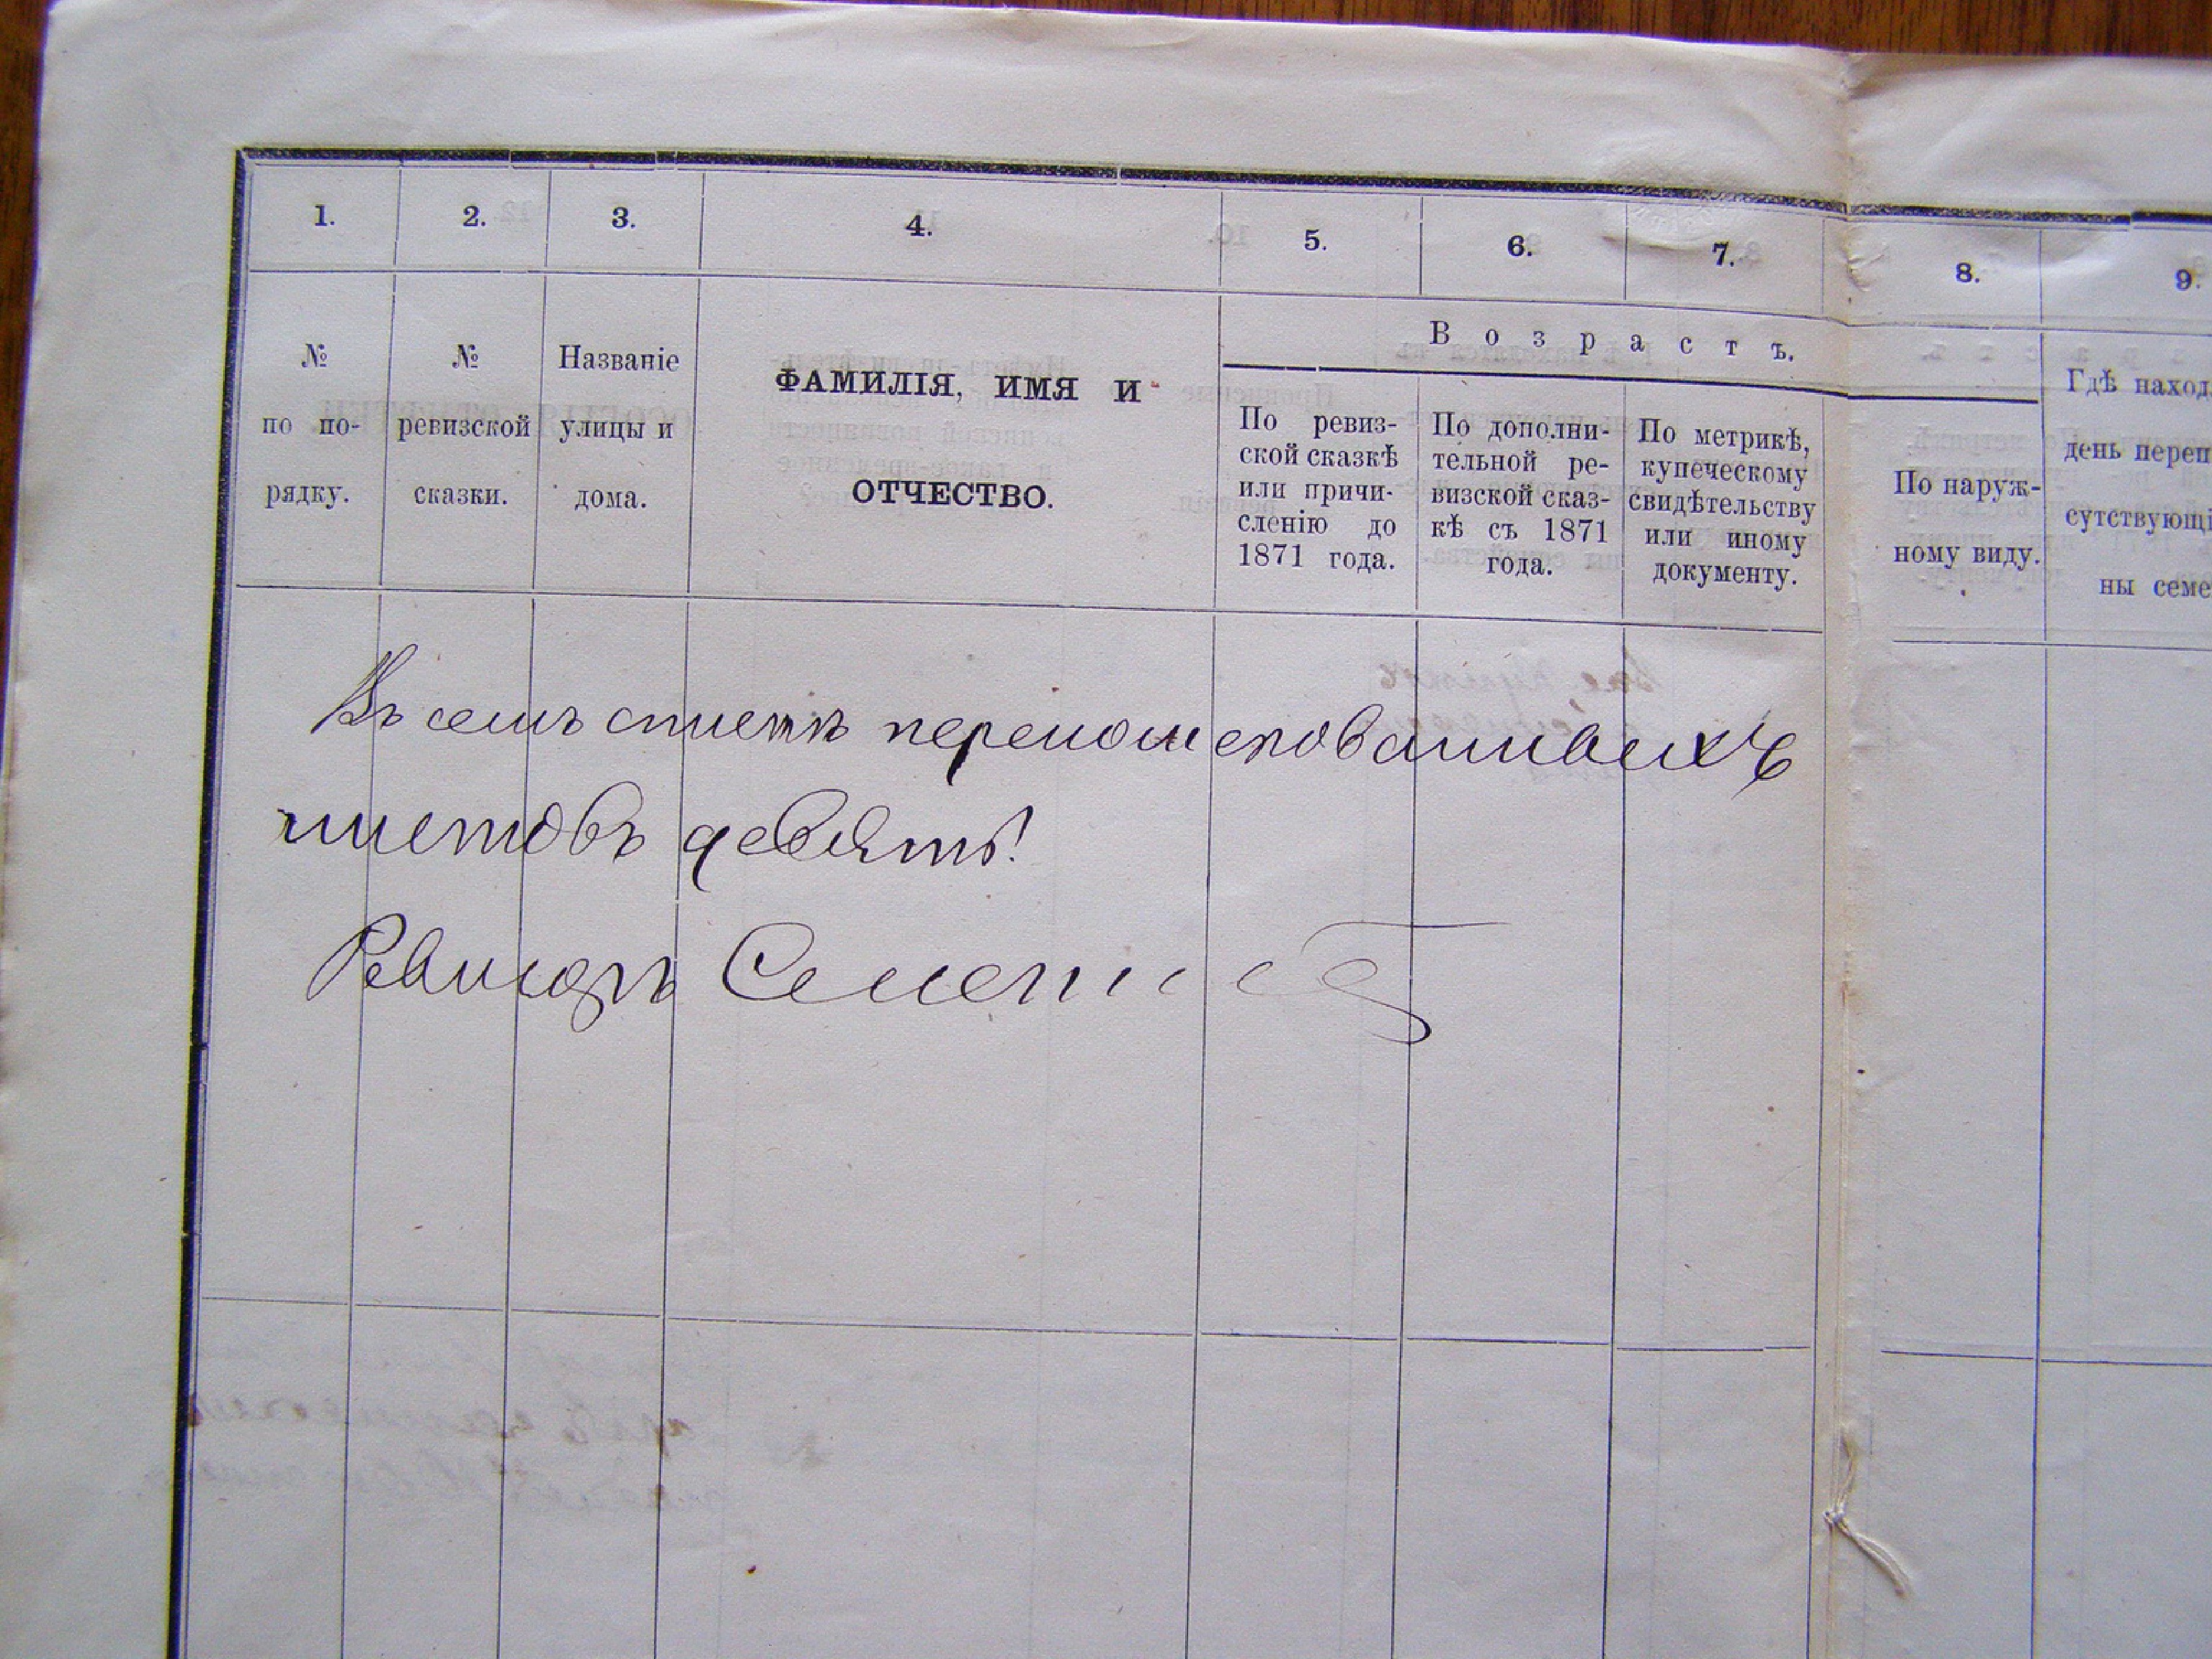 1. 2. 3. 4. 5. 6. 7. 8. 9.
№ по по-рядку.
№ ревизской сказки.
Названіе улицы и дома.
ФАМИЛІЯ, ИМЯ И
ОТЧЕСТВО.
Возрастъ.
По ревиз-
ской сказкѣ
или причи-
сленію до
1871 года.
По дополни-
тельной ре-
визской сказ-
кѣ съ 1871
года.
По метрикѣ,
купеческому
свидѣтельству
или иному
документу.
По наруж-
ному виду.
Гдѣ наход
день переп
сутствующі
ны семе
Въ семъ спискѣ перенумерованныхъ
листовъ девять.
Ревизоръ